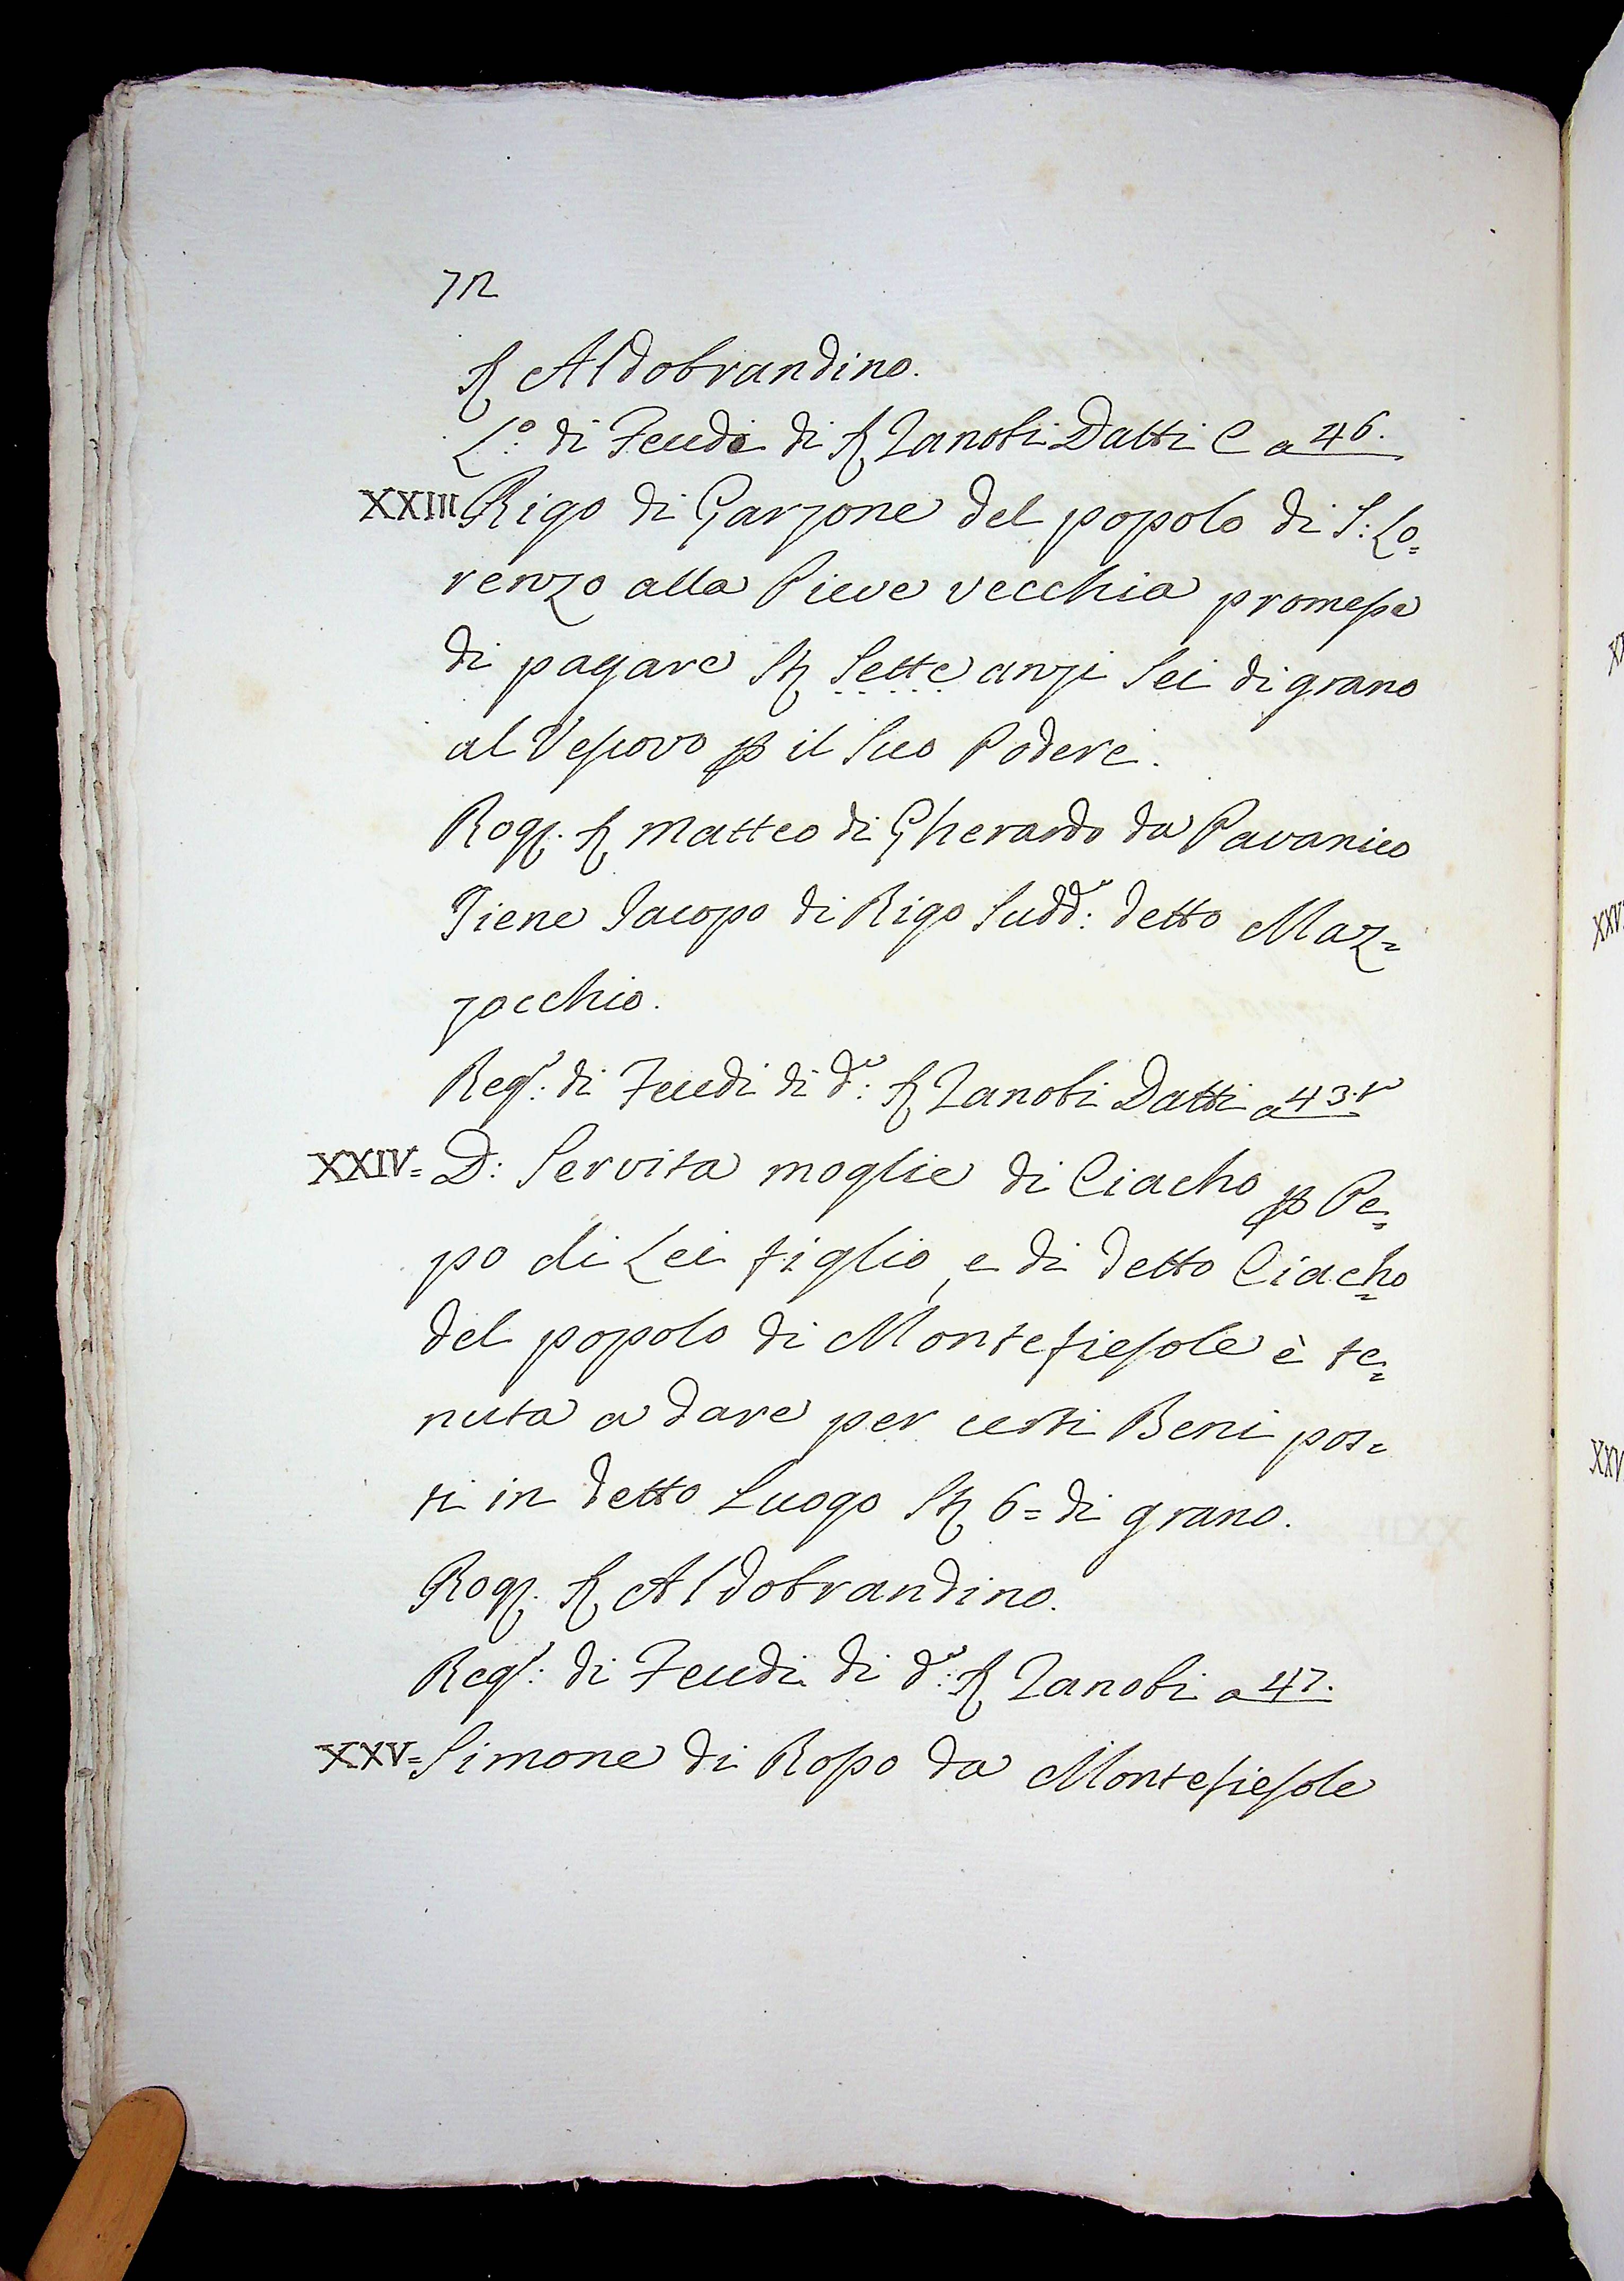 72
Sr Aldobrandino.
L.o di Feudi di Sr Zanobi Datti C a 46.
XXIII Rigo di Garzone del popolo di S: Lo=
renzo alla Pieve vecchia promesse
di pagare St Sette anzi Sei di grano
al Vescovo p il suo Podere.
Rog. Sr Matteo di Gherardo da Pavanico
Tiene Jacopo di Rigo Sudd.o: detto Maz=
zocchio.
Reg.o: di Feudi di d.o: Sr Zanobi Datti a 43.t
XXIV= D: Servita moglie di Ciacho p Pe=
po di Lei figlio, e di detto Ciacho=
del popolo di Montefiesole è te=
nuta a dare per certi Beni pos=
ti in detto Luogo St 6= di grano.
Rog. Sr Aldobrandino.
Reg.o: di Feudi di d.o: Sr Zanobi a 47.
XXV= Simone di Rosso da Montefiesole